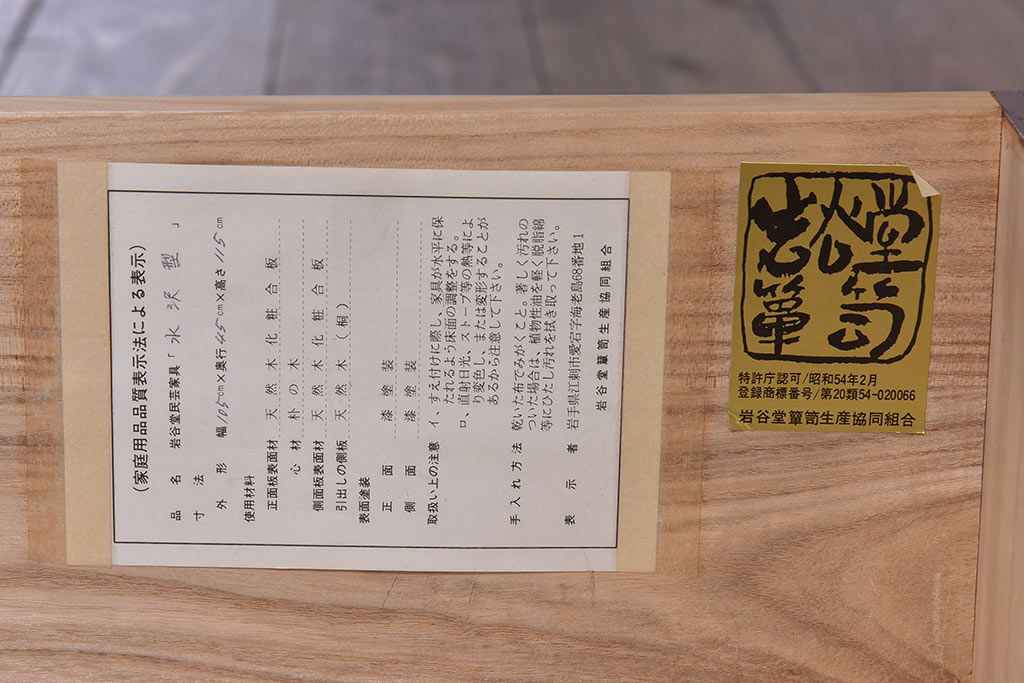 （家庭用品品質表示法による表示）
品名 岩谷堂民芸家具「水沢型」
寸法
外形 幅105cm×奥行45cm×高さ115cm
使用材料
正面板表面材 天然木化粧合板
心材 朴の木
側面板表面材 天然木化粧合板
引出しの側板 天然木（桐）
表面塗装
正面 漆塗装
側面 漆塗装
取扱い上の注意 イ、すえ付けに際し、家具が水平に保
たれるよう床面の調整をする。
ロ、直射日光、ストーブ等の熱等によ
り変色し、または変形することが
あるから注意して下さい。
手入れ方法 乾いた布でみがくこと。著しく汚れの
ついた場合は、植物性油を軽く脱脂綿
等にひたし汚れを拭き取って下さい。
表示者 岩手県江刺市愛宕字海老島68番地1
岩谷堂簞笥生産協同組合
岩谷堂
簞笥
特許庁認可/昭和54年2月
登録商標番号/第20類54-020066
岩谷堂簞笥生産協同組合